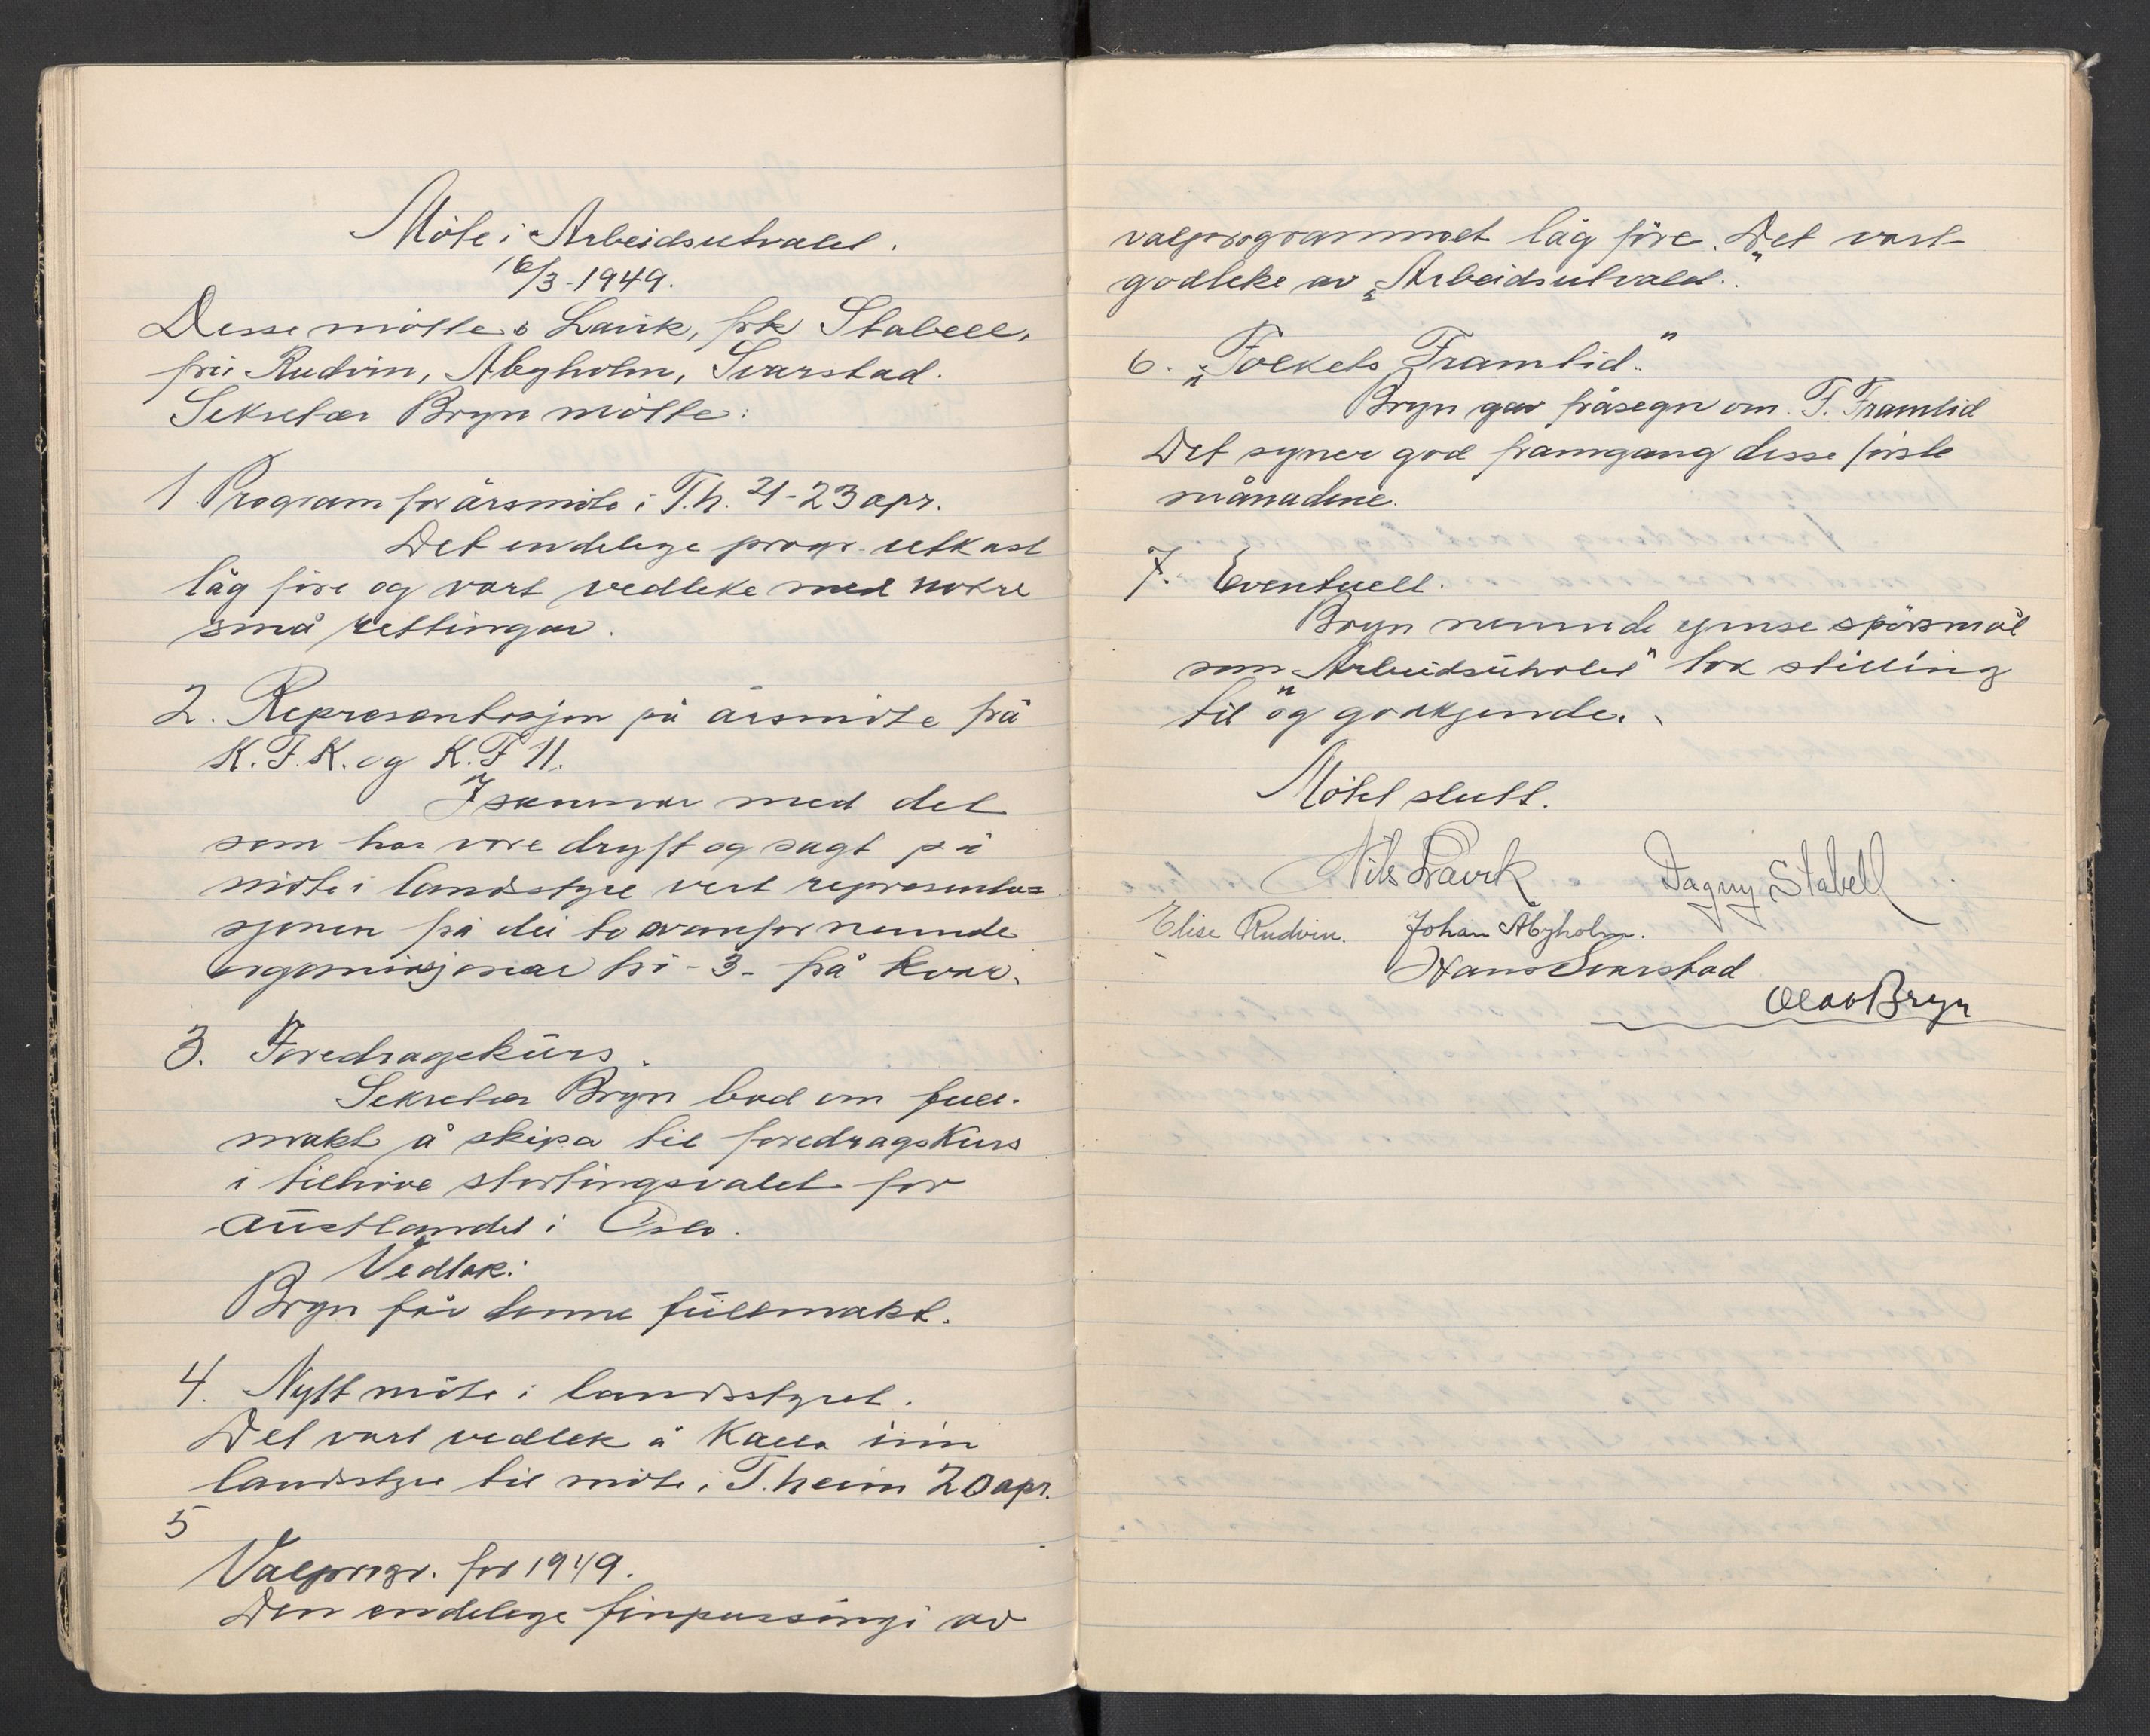 Möte i Arbeidsutvalet.
16/3-1949.
Desse mötte: Lavik, frk Stabell,
fru Rudvin, Åbyholm, Svarstad.
Sekretær Bryn mötte:
1. Program for årsmöte i T.h. 21-23 apr.
Det endelege progr. utkast
låg före og vart vedteke med nokre
små rettingar.
2. Representasjon på årsmöte frå
K.F.K. og K.F.U.
I samsvar med det
som har vore dryft og sagt på
möte i landsstyre vert representa=
sjonen frå dei to ovanfor nemnde
organisasjonar tri -3- frå kvar.
3. Foredragskurs.
Sekretær Bryn bad om full-
makt å skipa til foredragskurs
i tilhöve stortingsvalet for
Austlandet i Oslo.
Vedtak:
Bryn får denne fullmakt.
4. Nytt möte i landsstyret.
Det vart vedtek å kalla inn
landsstyre til möte i T.heim 20 apr.
5
Valprogr. for 1949.
Den endelege finpussingi av
valprogrammet låg före. Det vart
godteke av "Arbeidsutvalet".
6. "Folkets Framtid."
Bryn gav fråsegn om F. Framtid
Det syner god framgang desse förste
månadene.
7. Eventuelt.
Bryn nemnde ymse spörsmål
som "Arbeidsutvalet" tok stilling
til og godkjende.
Mötet slutt.
Nils Lavik Dagny Stabell
Elise Rudvin. Johan Åbyholm.
Hans Svarstad
Olav Bryn